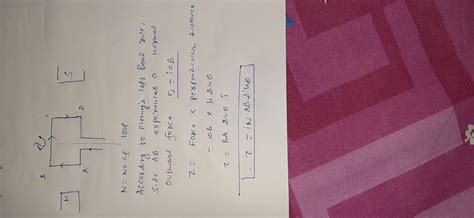 N
S
B
C
A
D
N = No. of turn
According to Fleming's left hand rule,
Side AB experiences a normal
outward force F = iℓB
τ = Force × perpendicular distance
= iℓB × b sinθ
τ = BA sinθ i
∴ τ = iN AB sinθ